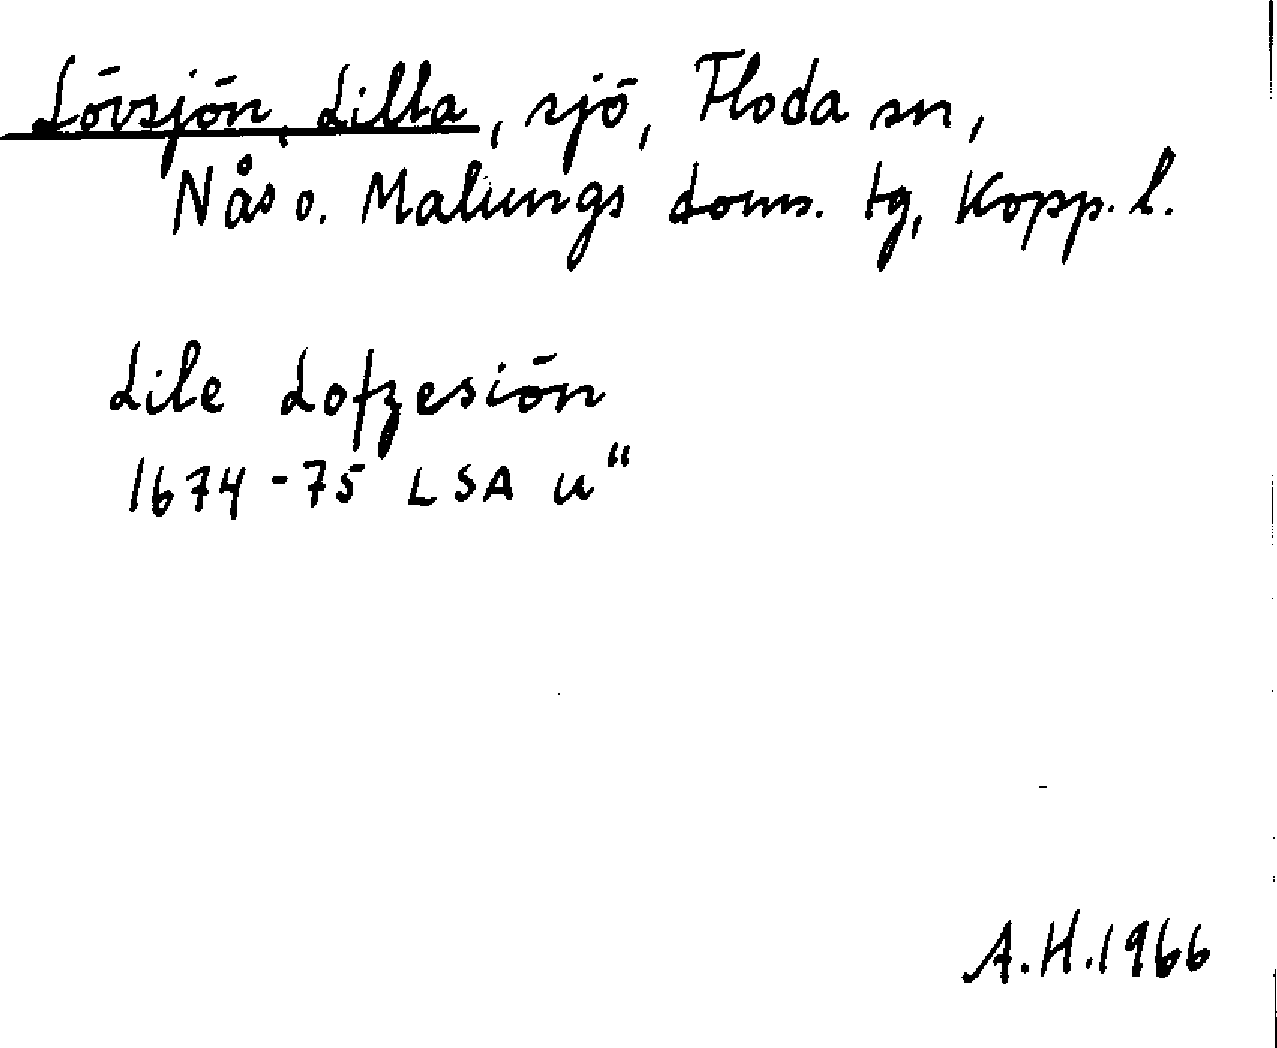 Lövsjön, Lilla, sjö, Floda sn,
Nås o. Malungs doms. tg, Kopp. l.
Lile Lofzesiön
1674-75 LSA u"
A.H.1966